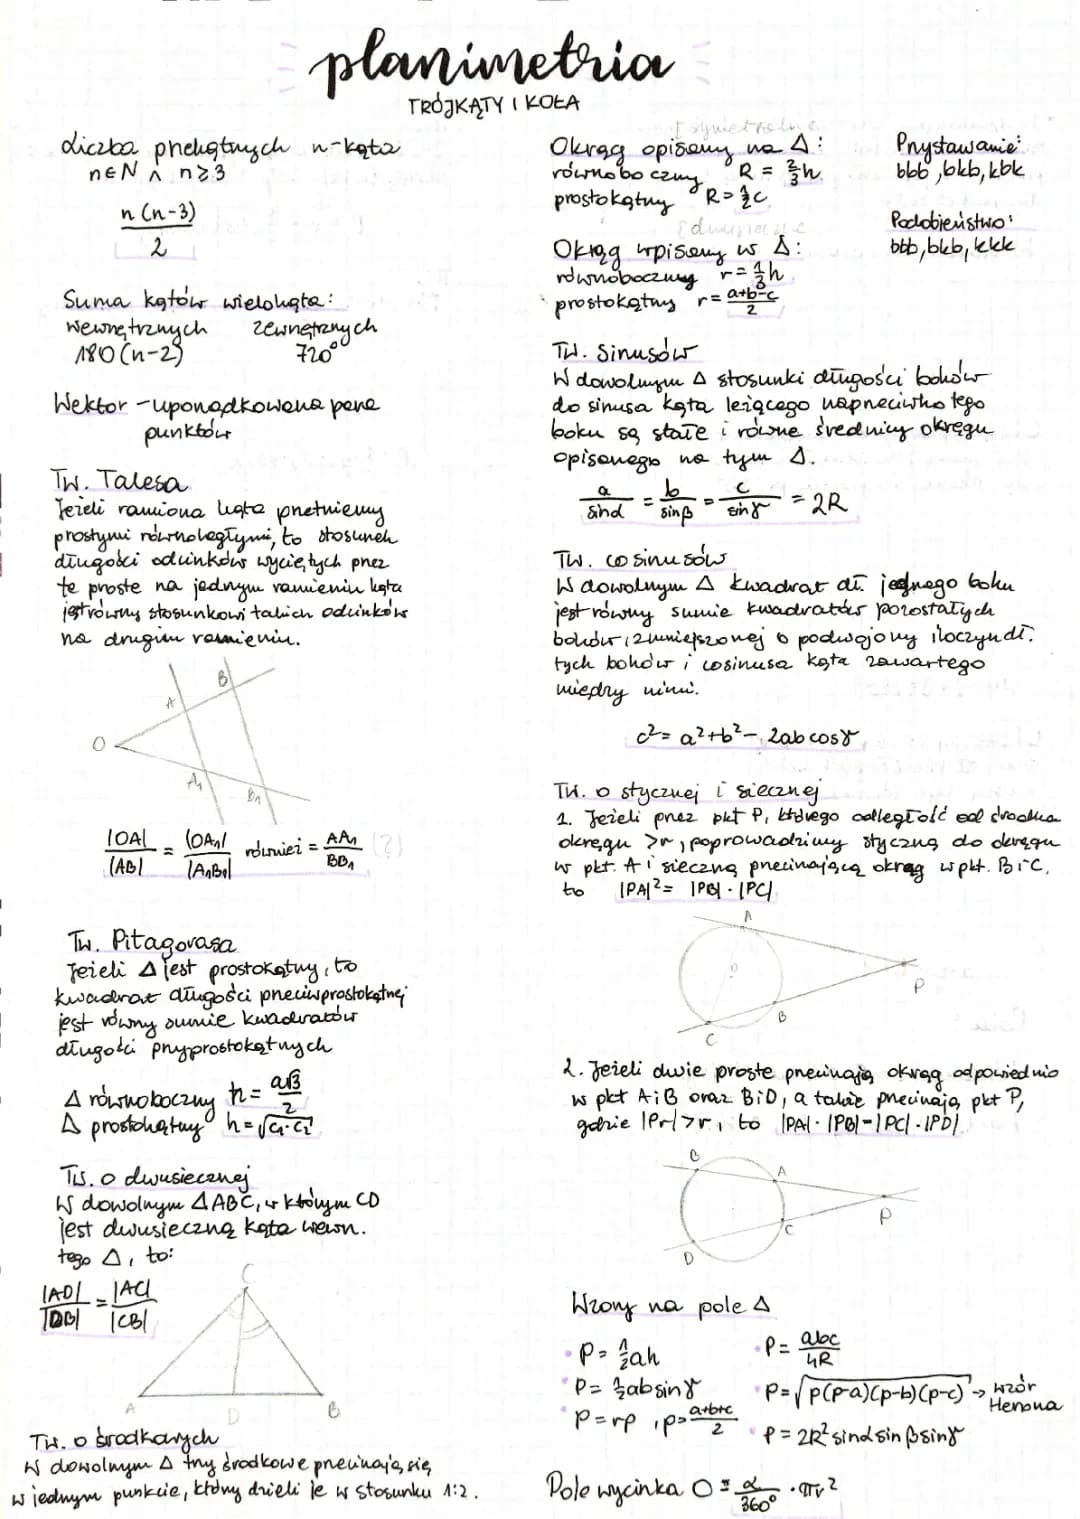 planimetria
TRÓJKĄTY I KOŁA
Liczba przekątnych n-kąta
n∈N ∧ n≥3
n(n-3)
2
Suma kątów wielokąta:
wewnętrznych zewnętrznych
180(n-2) 720°
Wektor - uporządkowana para
punktów
Tw. Talesa
Jeżeli ramiona kąta przetniemy
prostymi równoległymi, to stosunek
długości odcinków wyciętych przez
te proste na jednym ramieniu kąta
jest równy stosunkowi takich odcinków
na drugim ramieniu.
B
A
O
A₁
B₁
|OA| / |AB| = |OA₁| / |A₁B₁| również = AA₁ / BB₁ (?)
Tw. Pitagorasa
Jeżeli Δ jest prostokątny, to
kwadrat długości przeciwprostokątnej
jest równy sumie kwadratów
długości przyprostokątnych
Δ równoboczny h = a√3 / 2
Δ prostokątny h = √c₁·c₂
Tw. o dwusiecznej
W dowolnym ΔABC, w którym CD
jest dwusieczną kąta wewn.
tego Δ, to:
|AD| / |DB| = |AC| / |CB|
C
A
D
B
Tw. o środkowych
W dowolnym Δ trzy środkowe przecinają się
w jednym punkcie, który dzieli je w stosunku 1:2.
Okrąg opisany na Δ:
równoboczny R = 2/3 h
prostokątny R = 1/2 c
Okrąg wpisany w Δ:
równoboczny r = 1/3 h
prostokątny r = a+b-c / 2
Przystawanie:
bbb, bkb, kbk
Podobieństwo:
bbb, bkb, kkk
Tw. Sinusów
W dowolnym Δ stosunki długości boków
do sinusa kąta leżącego naprzeciwko tego
boku są stałe i równe średnicy okręgu
opisanego na tym Δ.
a / sinα = b / sinβ = c / sinγ = 2R
Tw. cosinusów
W dowolnym Δ kwadrat dł. jednego boku
jest równy sumie kwadratów pozostałych
boków, zmniejszonej o podwojony iloczyn dł.
tych boków i cosinusa kąta zawartego
między nimi.
c² = a² + b² - 2ab cosγ
Tw. o stycznej i siecznej
1. Jeżeli przez pkt P, którego odległość od środka
okręgu >r, poprowadzimy styczną do okręgu
w pkt. A i sieczną przecinającą okrąg w pkt. B i C,
to |PA|² = |PB| · |PC|
A
O
P
B
C
2. Jeżeli dwie proste przecinają okrąg odpowiednio
w pkt A i B oraz B i D, a także przecinają pkt P,
gdzie |Pr| > r, to |PA| · |PB| = |PC| · |PD|
B
A
P
C
D
Wzory na pole Δ
• P = 1/2 ah
• P = 1/2 ab sinγ
• P = rp, p = a+b+c / 2
• P = abc / 4R
• P = √p(p-a)(p-b)(p-c) → wzór
Herona
• P = 2R² sinα sinβ sinγ
Pole wycinka O = α / 360° · πr²